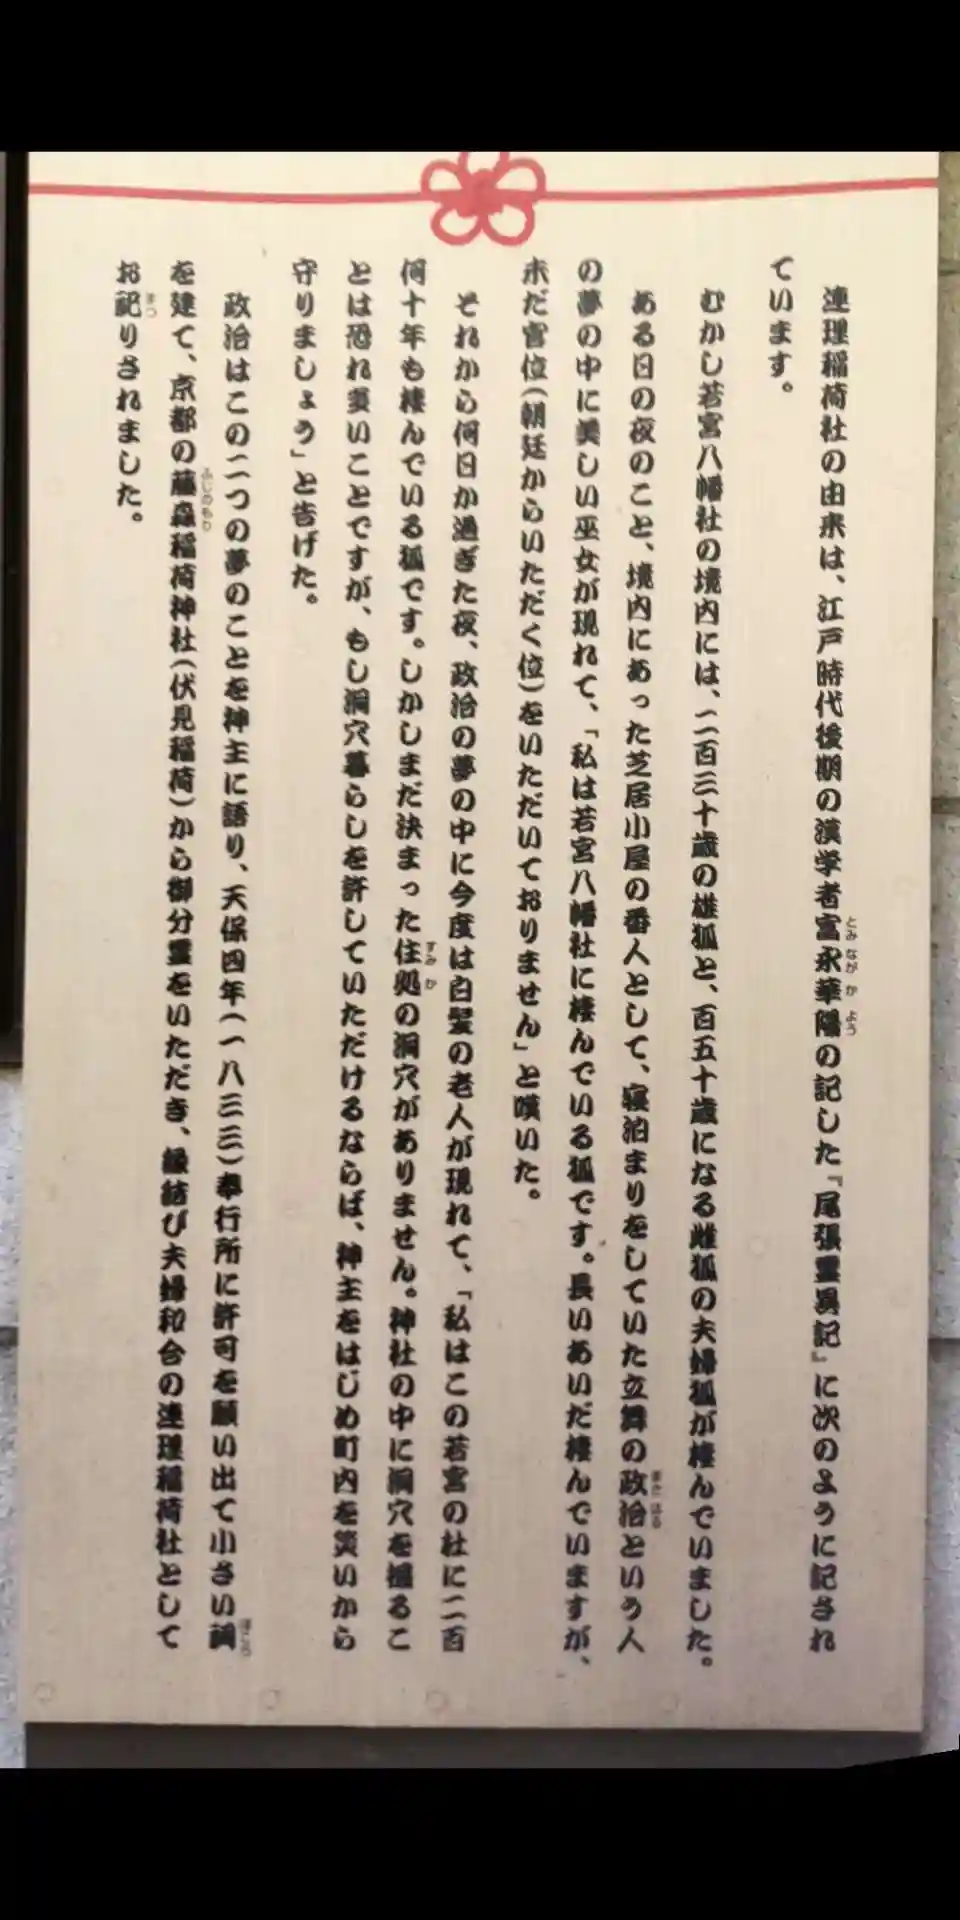 連理稲荷社の由来は、江戸時代後期の漢学者富永華陽の記した『尾張霊異記』に次のように記され
とみ なが か よう
ています。
むかし若宮八幡社の境内には、二百三十歳の雄狐と、百五十歳になる雌狐の夫婦狐が棲んでいました。
ある日の夜のこと、境内にあった芝居小屋の番人として、寝泊まりをしていた立舞の政治という人
まさ はる
の夢の中に美しい巫女が現れて、「私は若宮八幡社に棲んでいる狐です。長いあいだ棲んでいますが、
未だ官位(朝廷からいただく位)をいただいておりません」と嘆いた。
それから何日か過ぎた夜、政治の夢の中に今度は白髪の老人が現れて、「私はこの若宮の杜に二百
何十年も棲んでいる狐です。しかしまだ決まった住処の洞穴がありません。神社の中に洞穴を掘るこ
すみ か
とは恐れ多いことですが、もし洞穴暮らしを許していただけるならば、神主をはじめ町内を災いから
守りましょう」と告げた。
政治はこの二つの夢のことを神主に語り、天保四年(一八三三)奉行所に許可を願い出て小さい祠
ほこら
を建て、京都の藤森稲荷神社(伏見稲荷)から御分霊をいただき、縁結び夫婦和合の連理稲荷社として
ふじのもり
お祀りされました。
まつ